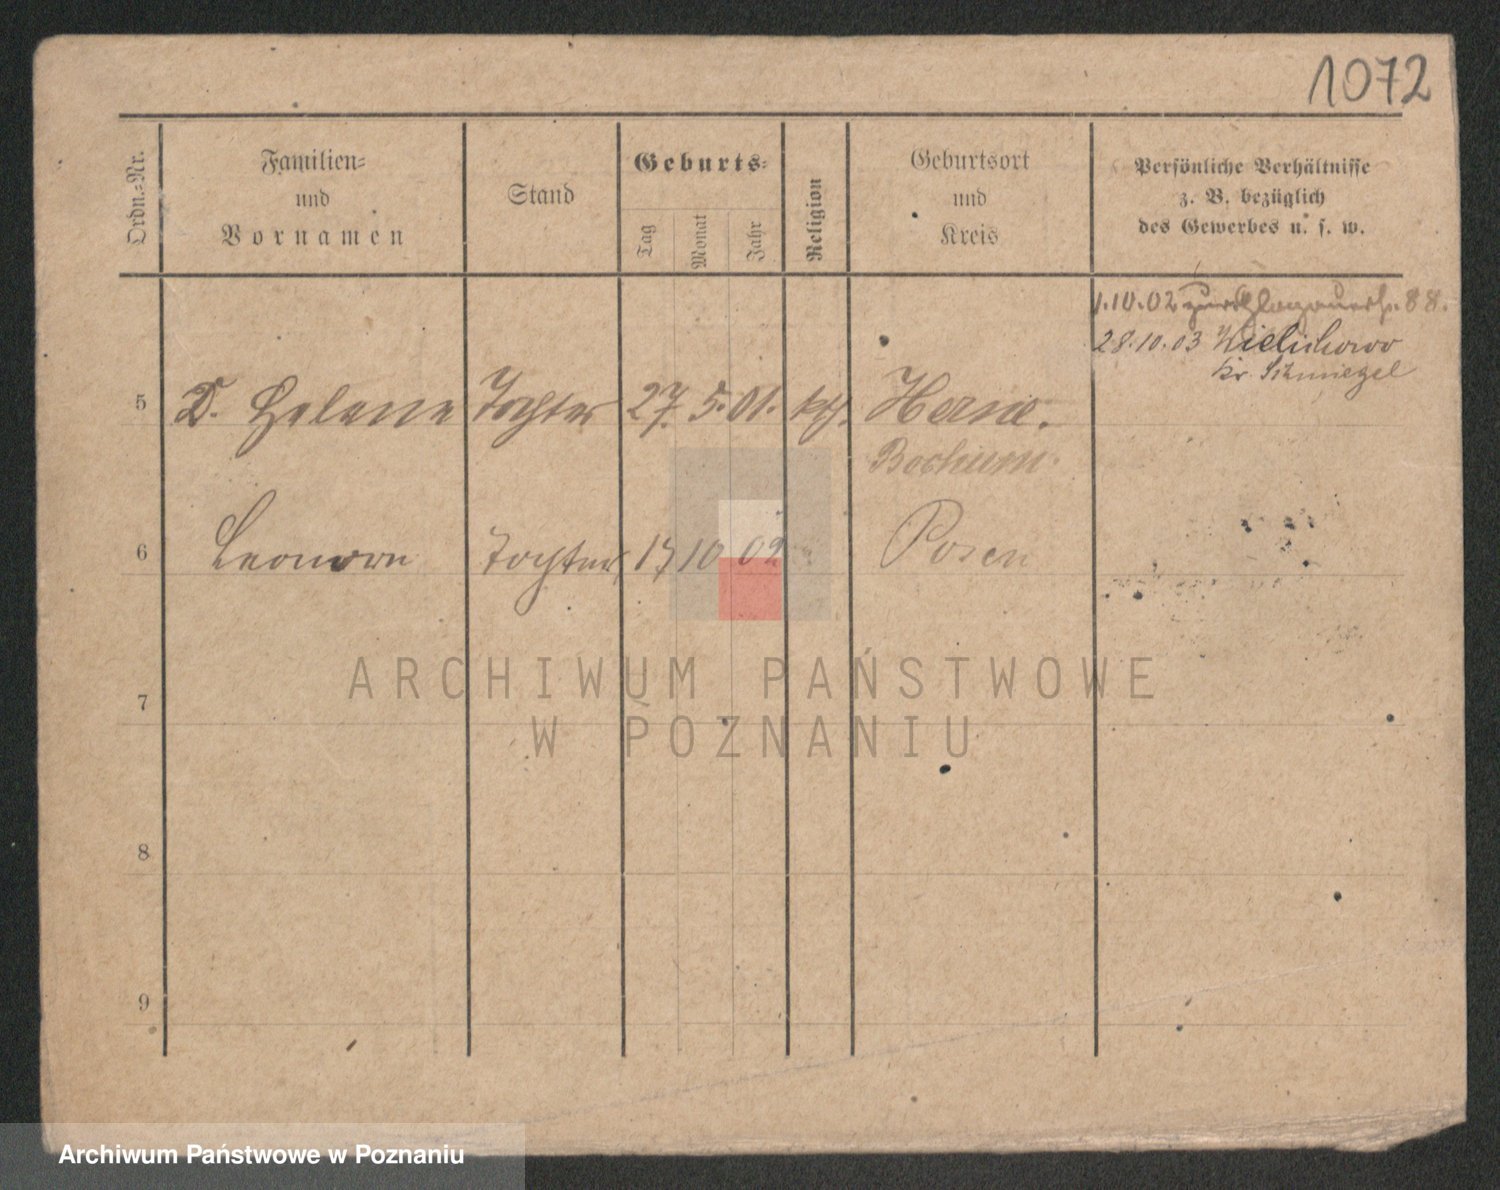 1072
Ordn.-Nr.
Familien-
und
Vornamen
Stand
Geburts-
Tag
Monat
Jahr
Religion
Geburtsort
und
Kreis
Persönliche Verhältnisse
z. B. bezüglich
des Gewerbes u. s. w.
1.10.02 88.
28.10.03 Wielichowo
Kr. Schmiegel
5 D. Helene Tochter 27. 5. 01. kth. Herne.
Bochum
6 Tochter 17 10 02 Posen
7
8
9
ARCHIWUM PAŃSTWOWE
W POZNANIU
Archiwum Państwowe w Poznaniu